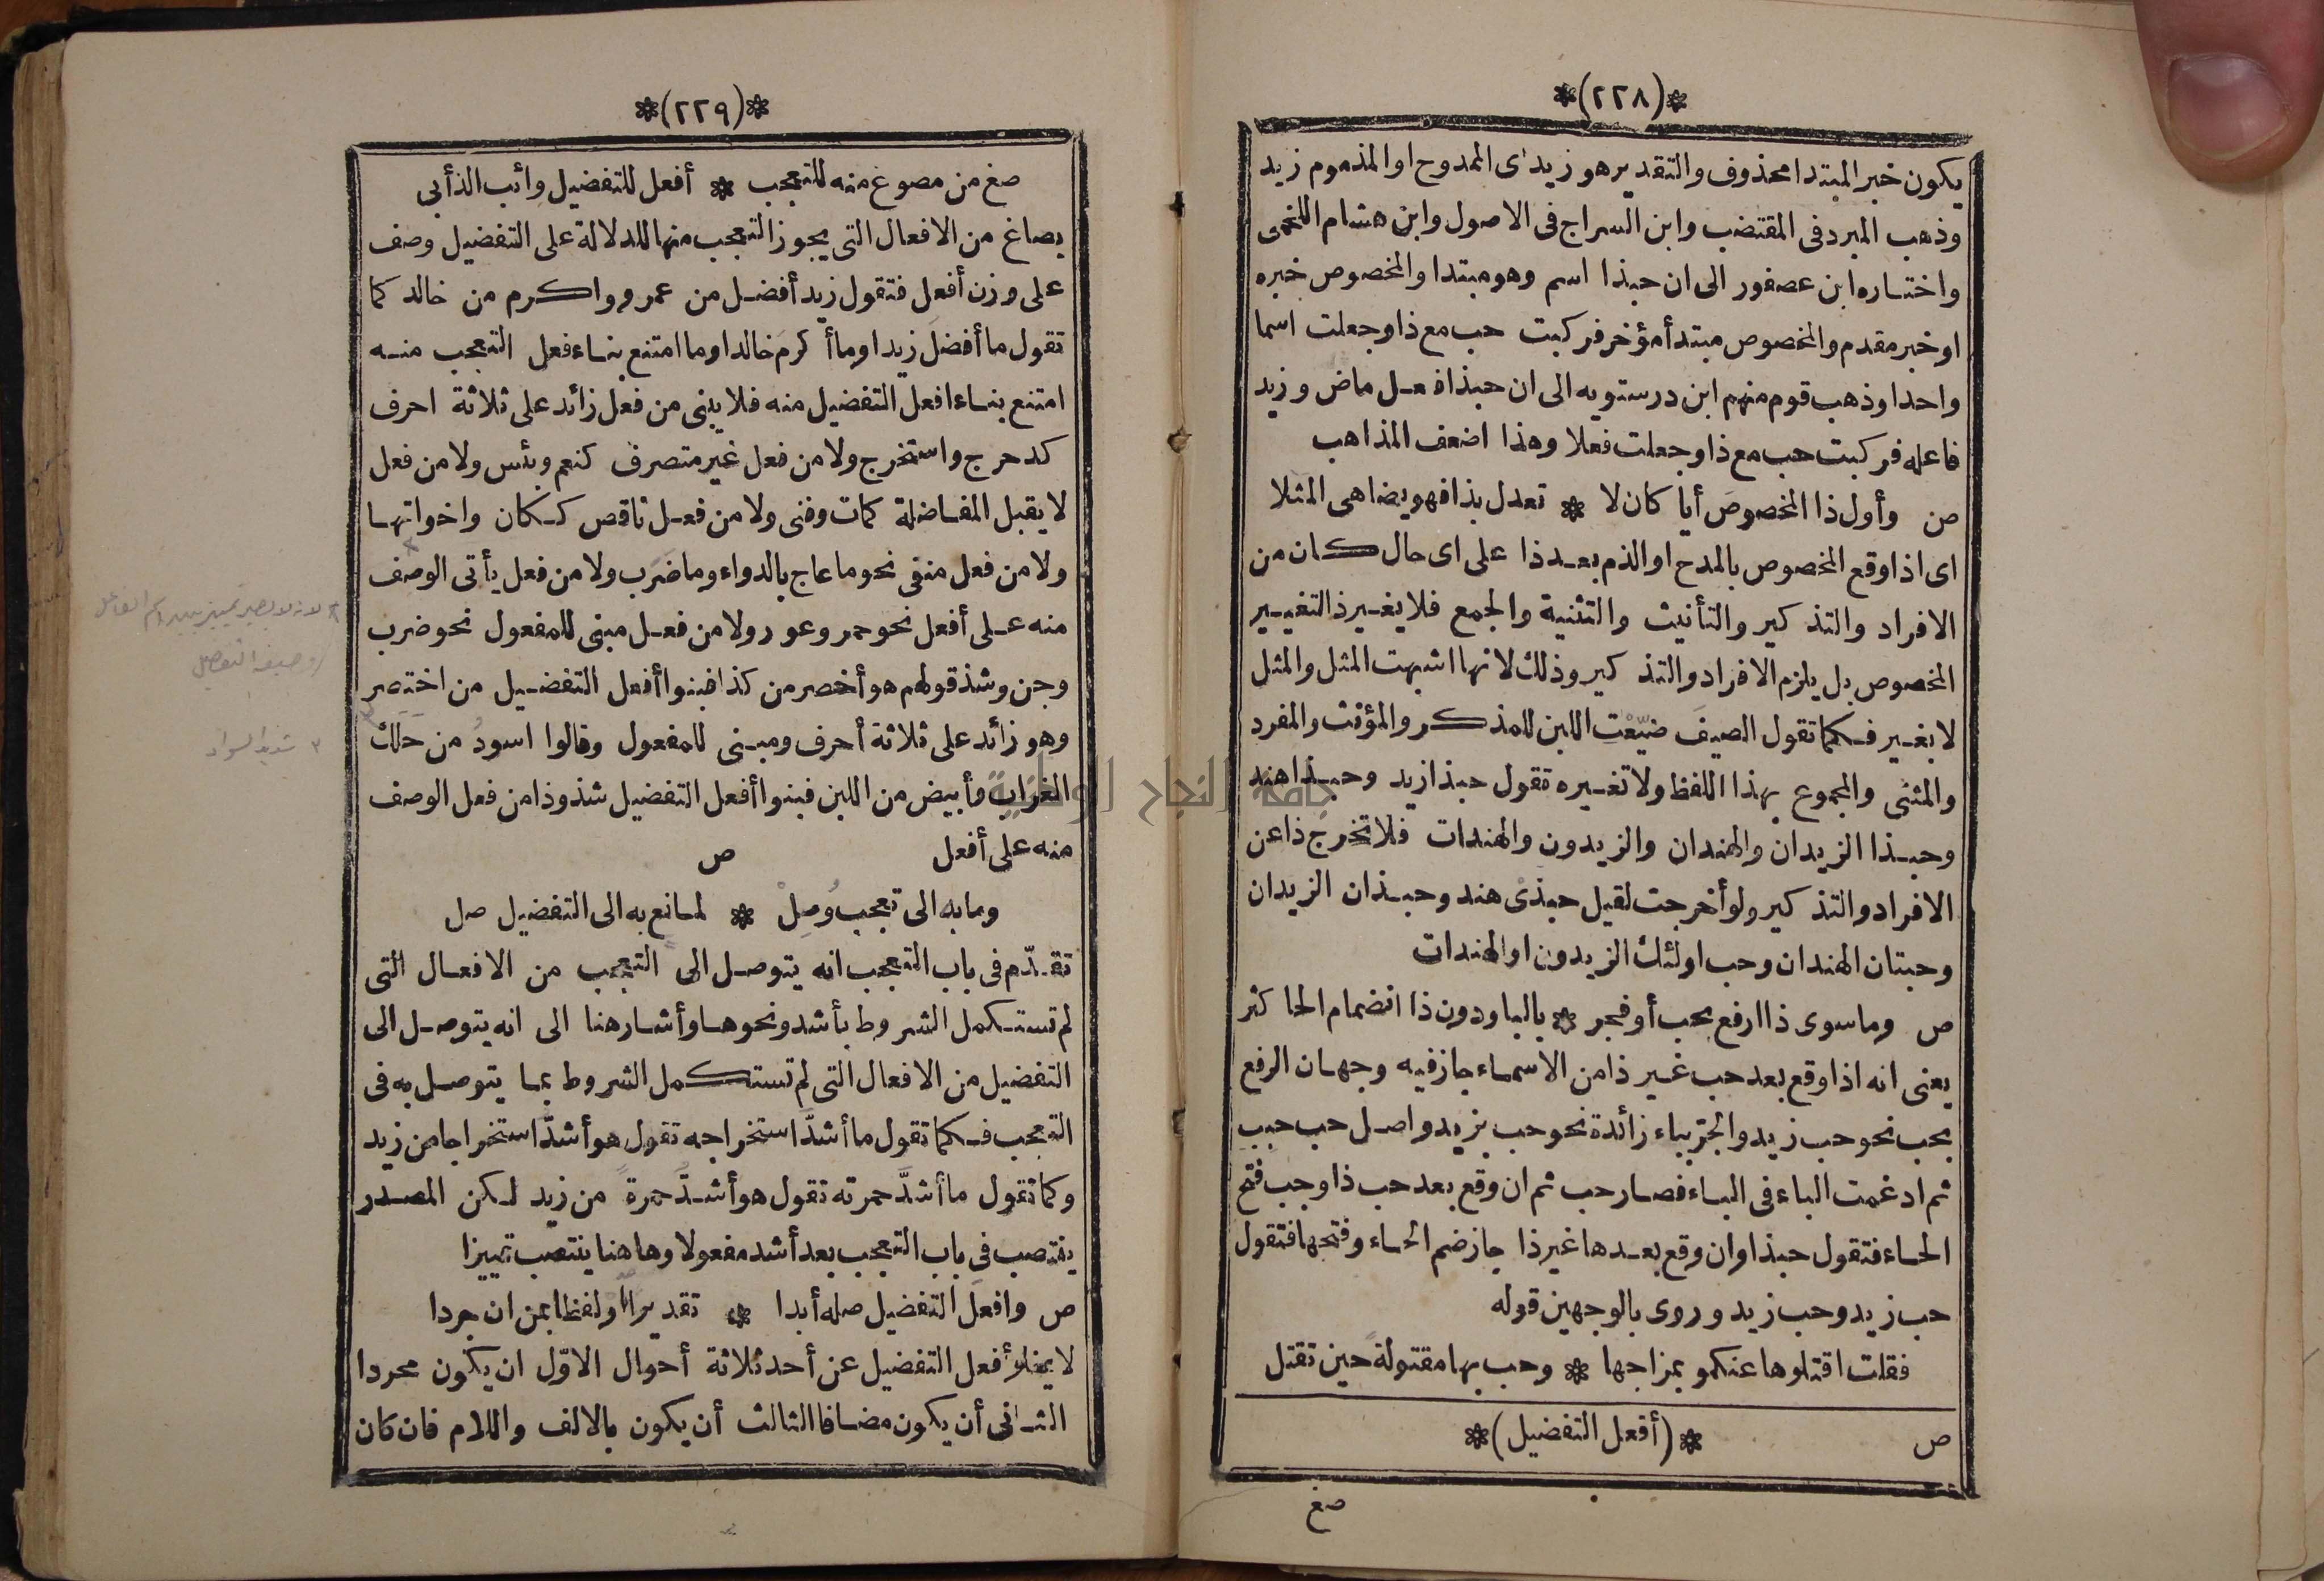 *(٢٢٨)*
يكون خبر المبتدا محذوف والتقدير هو زيد اى الممدوح او المذموم زيد
وذهب المبرد فى المقتضب وابن السراج فى الاصول وابن هشام اللخمى
واختاره ابن عصفور الى ان حبذا اسم وهو مبتدا والمخصوص خبره
او خبر مقدم والمخصوص مبتدأ مؤخر فركبت حب مع ذا وجعلت اسما
واحدا وذهب قوم منهم ابن درستويه الى ان حبذا فعل ماض وزيد
فاعله فركبت حب مع ذا وجعلت فعلا وهذا اضعف المذاهب
ص وأول ذا المخصوصَ أيا كان لا * تعدل بذا فهو يضاهى المثلا
اى اذا وقع المخصوص بالمدح او الذم بعد ذا على اى حال كان من
الافراد والتذكير والتأنيث والتثنية والجمع فلا يغير ذا لتغيير
المخصوص بل يلزم الافراد والتذكير وذلك لانها اشبهت المثل والمثل
لا يغير فكما تقول الصيفَ ضيّعْتِ اللبن للمذكر والمؤنث والمفرد
والمثنى والمجموع بهذا اللفظ ولا تغيره تقول حبذا زيد وحبذا هند
وحبذا الزيدان والهندان والزيدون والهندات فلا تخرج ذا عن
الافراد والتذكير ولو أخرجت لقيل حبذى هند وحبذان الزيدان
وحبتان الهندان وحب اولئك الزيدون او الهندات
ص وما سوى ذا ارفع بحب أو فجر * بالبا ودون ذا انضمام الحا كثر
يعنى انه اذا وقع بعد حب غير ذا من الاسماء جاز فيه وجهان الرفع
بحب نحو حب زيد والجرّ بباء زائدة نحو حب بزيد واصل حب حبب
ثم ادغمت الباء فى الباء فصار حب ثم ان وقع بعد حب ذا وجب فتح
الحاء فتقول حبذا وان وقع بعدها غير ذا جاز ضم الحاء وفتحها فتقول
حب زيد وحب زيد وروى بالوجهين قوله
فقلت اقتلوها عنكمو بمزاجها * وحب بها مقتولة حين تقتل
ص *(أفعل التفضيل)*
صغ
*(٢٢٩)*
صغ من مصوغ منه للتعجب * أفعل للتفضيل وائب اللذ أبى
يصاغ من الافعال التى يجوز التعجب منها للدلالة على التفضيل وصف
على وزن أفعل فتقول زيد أفضل من عمرو واكرم من خالد كما
تقول ما أفضلَ زيدا وما أكرمَ خالدا وما امتنع بناء فعل التعجب منه
امتنع بناء افعل التفضيل منه فلا يبنى من فعل زائد على ثلاثة احرف
كدحرج واستخرج ولا من فعل غير متصرف كنعم وبئس ولا من فعل
لا يقبل المفاضلة كمات وفنى ولا من فعل ناقص ككان واخواتها
ولا من فعل منفى نحو ما عاج بالدواء وما ضَرَب ولا من فعل يأتى الوصف
منه على أفعل نحو حمر وعور ولا من فعل مبنى للمفعول نحو ضرب
وجن وشذ قولهم هو أخصر من كذا فبنوا أفعل التفضيل من اختصر
وهو زائد على ثلاثة أحرف ومبنى للمفعول وقالوا اسودُ من حلك
الغراب وأبيض من اللبن فبنوا أفعل التفضيل شذوذا من فعل الوصف
منه على أفعل ص
وما به الى تعجب وُصِلْ * لمانع به الى التفضيل صل
تقدّم فى باب التعجب انه يتوصل الى التعجب من الافعال التى
لم تستكمل الشروط بأشد ونحوها وأشار هنا الى انه يتوصل الى
التفضيل من الافعال التى لم تستكمل الشروط بما يتوصل به فى
التعجب فكما تقول ما أشدَّ استخراجه تقول هو أشدّ استخراجا من زيد
وكما تقول ما أشدَّ حمرته تقول هو أشدّ حمرةً من زيد لكن المصدر
ينتصب فى باب التعجب بعد أشد مفعولا وهاهنا ينتصب تمييزا
ص وافعل التفضيل صله أبدا * تقديرا او لفظا بمن ان جردا
لا يخلو أفعل التفضيل عن أحد ثلاثة أحوال الاوّل ان يكون مجردا
الثانى أن يكون مضافا الثالث أن يكون بالالف واللام فان كان
شديد السواد
جامعة النجاح الوطنية